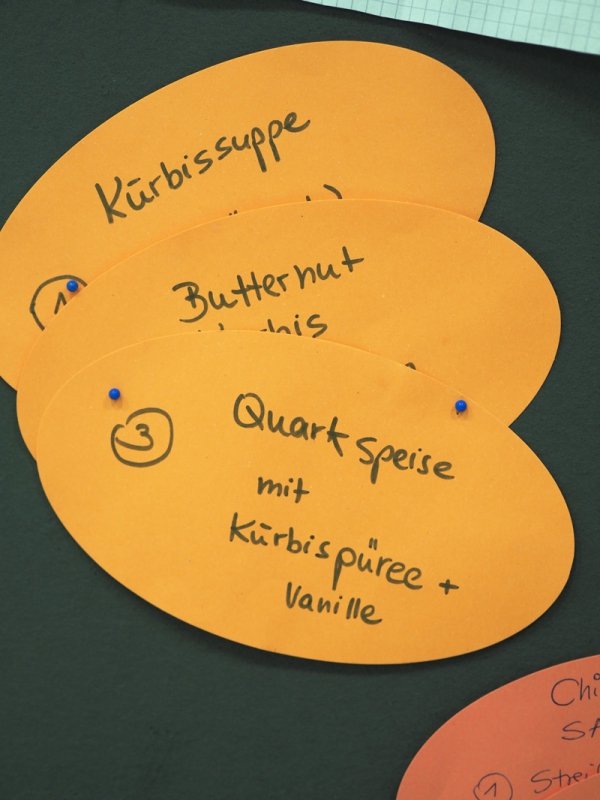 Kürbissuppe
①
Butternut
③
Quarkspeise
mit
Kürbispüree +
Vanille
①